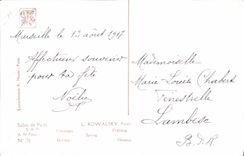 Marseille le 13 août 1917
Affectueux souvenir
pour ta fête
Noélie
Mademoiselle
Marie Louise Chabert
Fenestrelle
Lambesc
B.d.R
Salon de Paris
L. KOWALSKY, Paris
Printemps
Spring